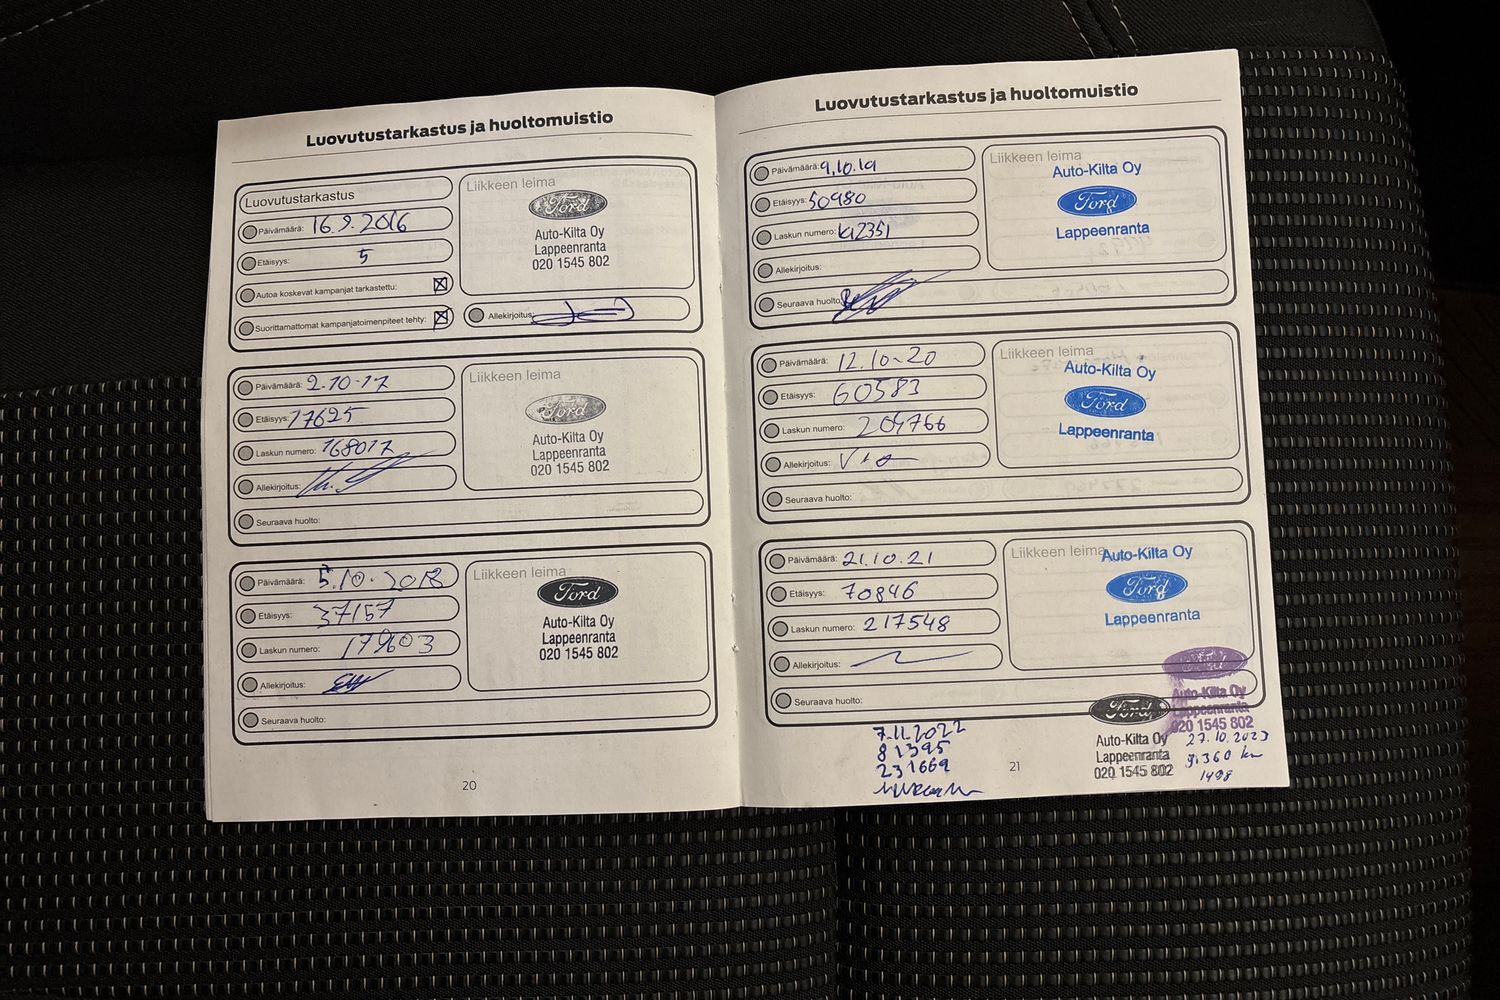 Luovutustarkastus ja huoltomuistio
Luovutustarkastus
Päivämäärä: 16.9.2016
Etäisyys: 5
Autoa koskevat kampanjat tarkastettu:
Suorittamattomat kampanjatoimenpiteet tehty:
Liikkeen leima
Ford
Auto-Kilta Oy
Lappeenranta
020 1545 802
Allekirjoitus:
Päivämäärä: 2.10.17
Etäisyys: 17625
Laskun numero: 168017
Allekirjoitus:
Seuraava huolto:
Liikkeen leima
Ford
Auto-Kilta Oy
Lappeenranta
020 1545 802
Päivämäärä: 5.10.2018
Etäisyys: 37157
Laskun numero: 179603
Allekirjoitus:
Seuraava huolto:
Liikkeen leima
Ford
Auto-Kilta Oy
Lappeenranta
020 1545 802
20
Luovutustarkastus ja huoltomuistio
Päivämäärä: 9.10.19
Etäisyys: 50980
Laskun numero:
Allekirjoitus:
Seuraava huolto:
Liikkeen leima
Auto-Kilta Oy
Ford
Lappeenranta
Päivämäärä: 12.10-20
Etäisyys: 60583
Laskun numero: 204766
Allekirjoitus:
Seuraava huolto:
Liikkeen leima
Auto-Kilta Oy
Ford
Lappeenranta
Päivämäärä: 21.10.21
Etäisyys: 70846
Laskun numero: 217548
Allekirjoitus:
Seuraava huolto:
Liikkeen leima
Auto-Kilta Oy
Ford
Lappeenranta
7.11.2022
81395
231669
Ford
Auto-Kilta Oy
Lappeenranta
020 1545 802
Ford
Auto-Kilta Oy
Lappeenranta
020 1545 802
27.10.2023
km
1498
21